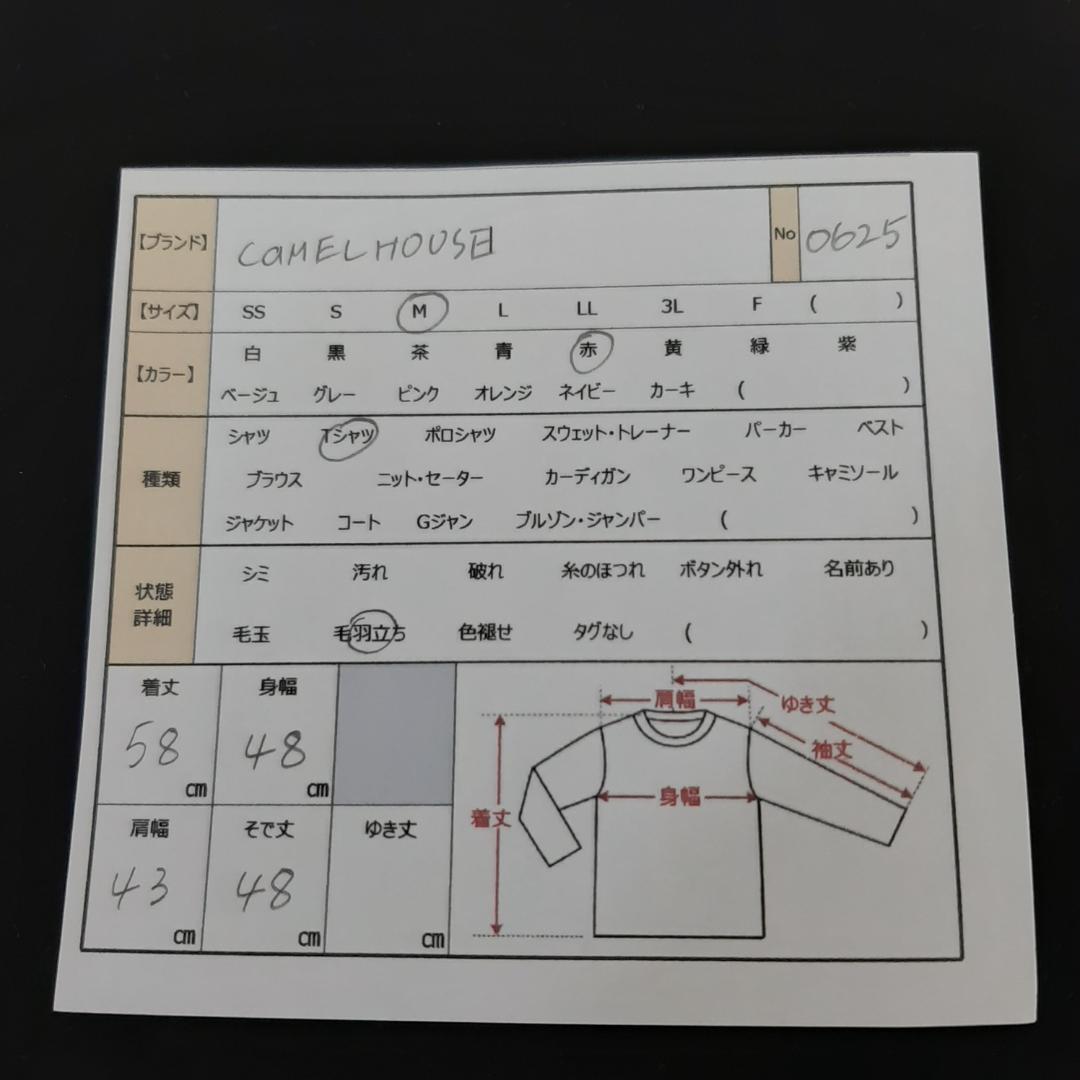 【ブランド】 CAMEL HOUSE No 0625
【サイズ】 SS S M L LL 3L F ( )
【カラー】 白 黒 茶 青 赤 黄 緑 紫
ベージュ グレー ピンク オレンジ ネイビー カーキ ( )
種類 シャツ Tシャツ ポロシャツ スウェット・トレーナー パーカー ベスト
ブラウス ニット・セーター カーディガン ワンピース キャミソール
ジャケット コート Gジャン ブルゾン・ジャンパー ( )
状態
詳細
シミ 汚れ 破れ 糸のほつれ ボタン外れ 名前あり
毛玉 毛羽立ち 色褪せ タグなし ( )
着丈 身幅
58 cm 48 cm
肩幅 そで丈 ゆき丈
43 cm 48 cm cm
肩幅 ゆき丈
袖丈
身幅
着丈